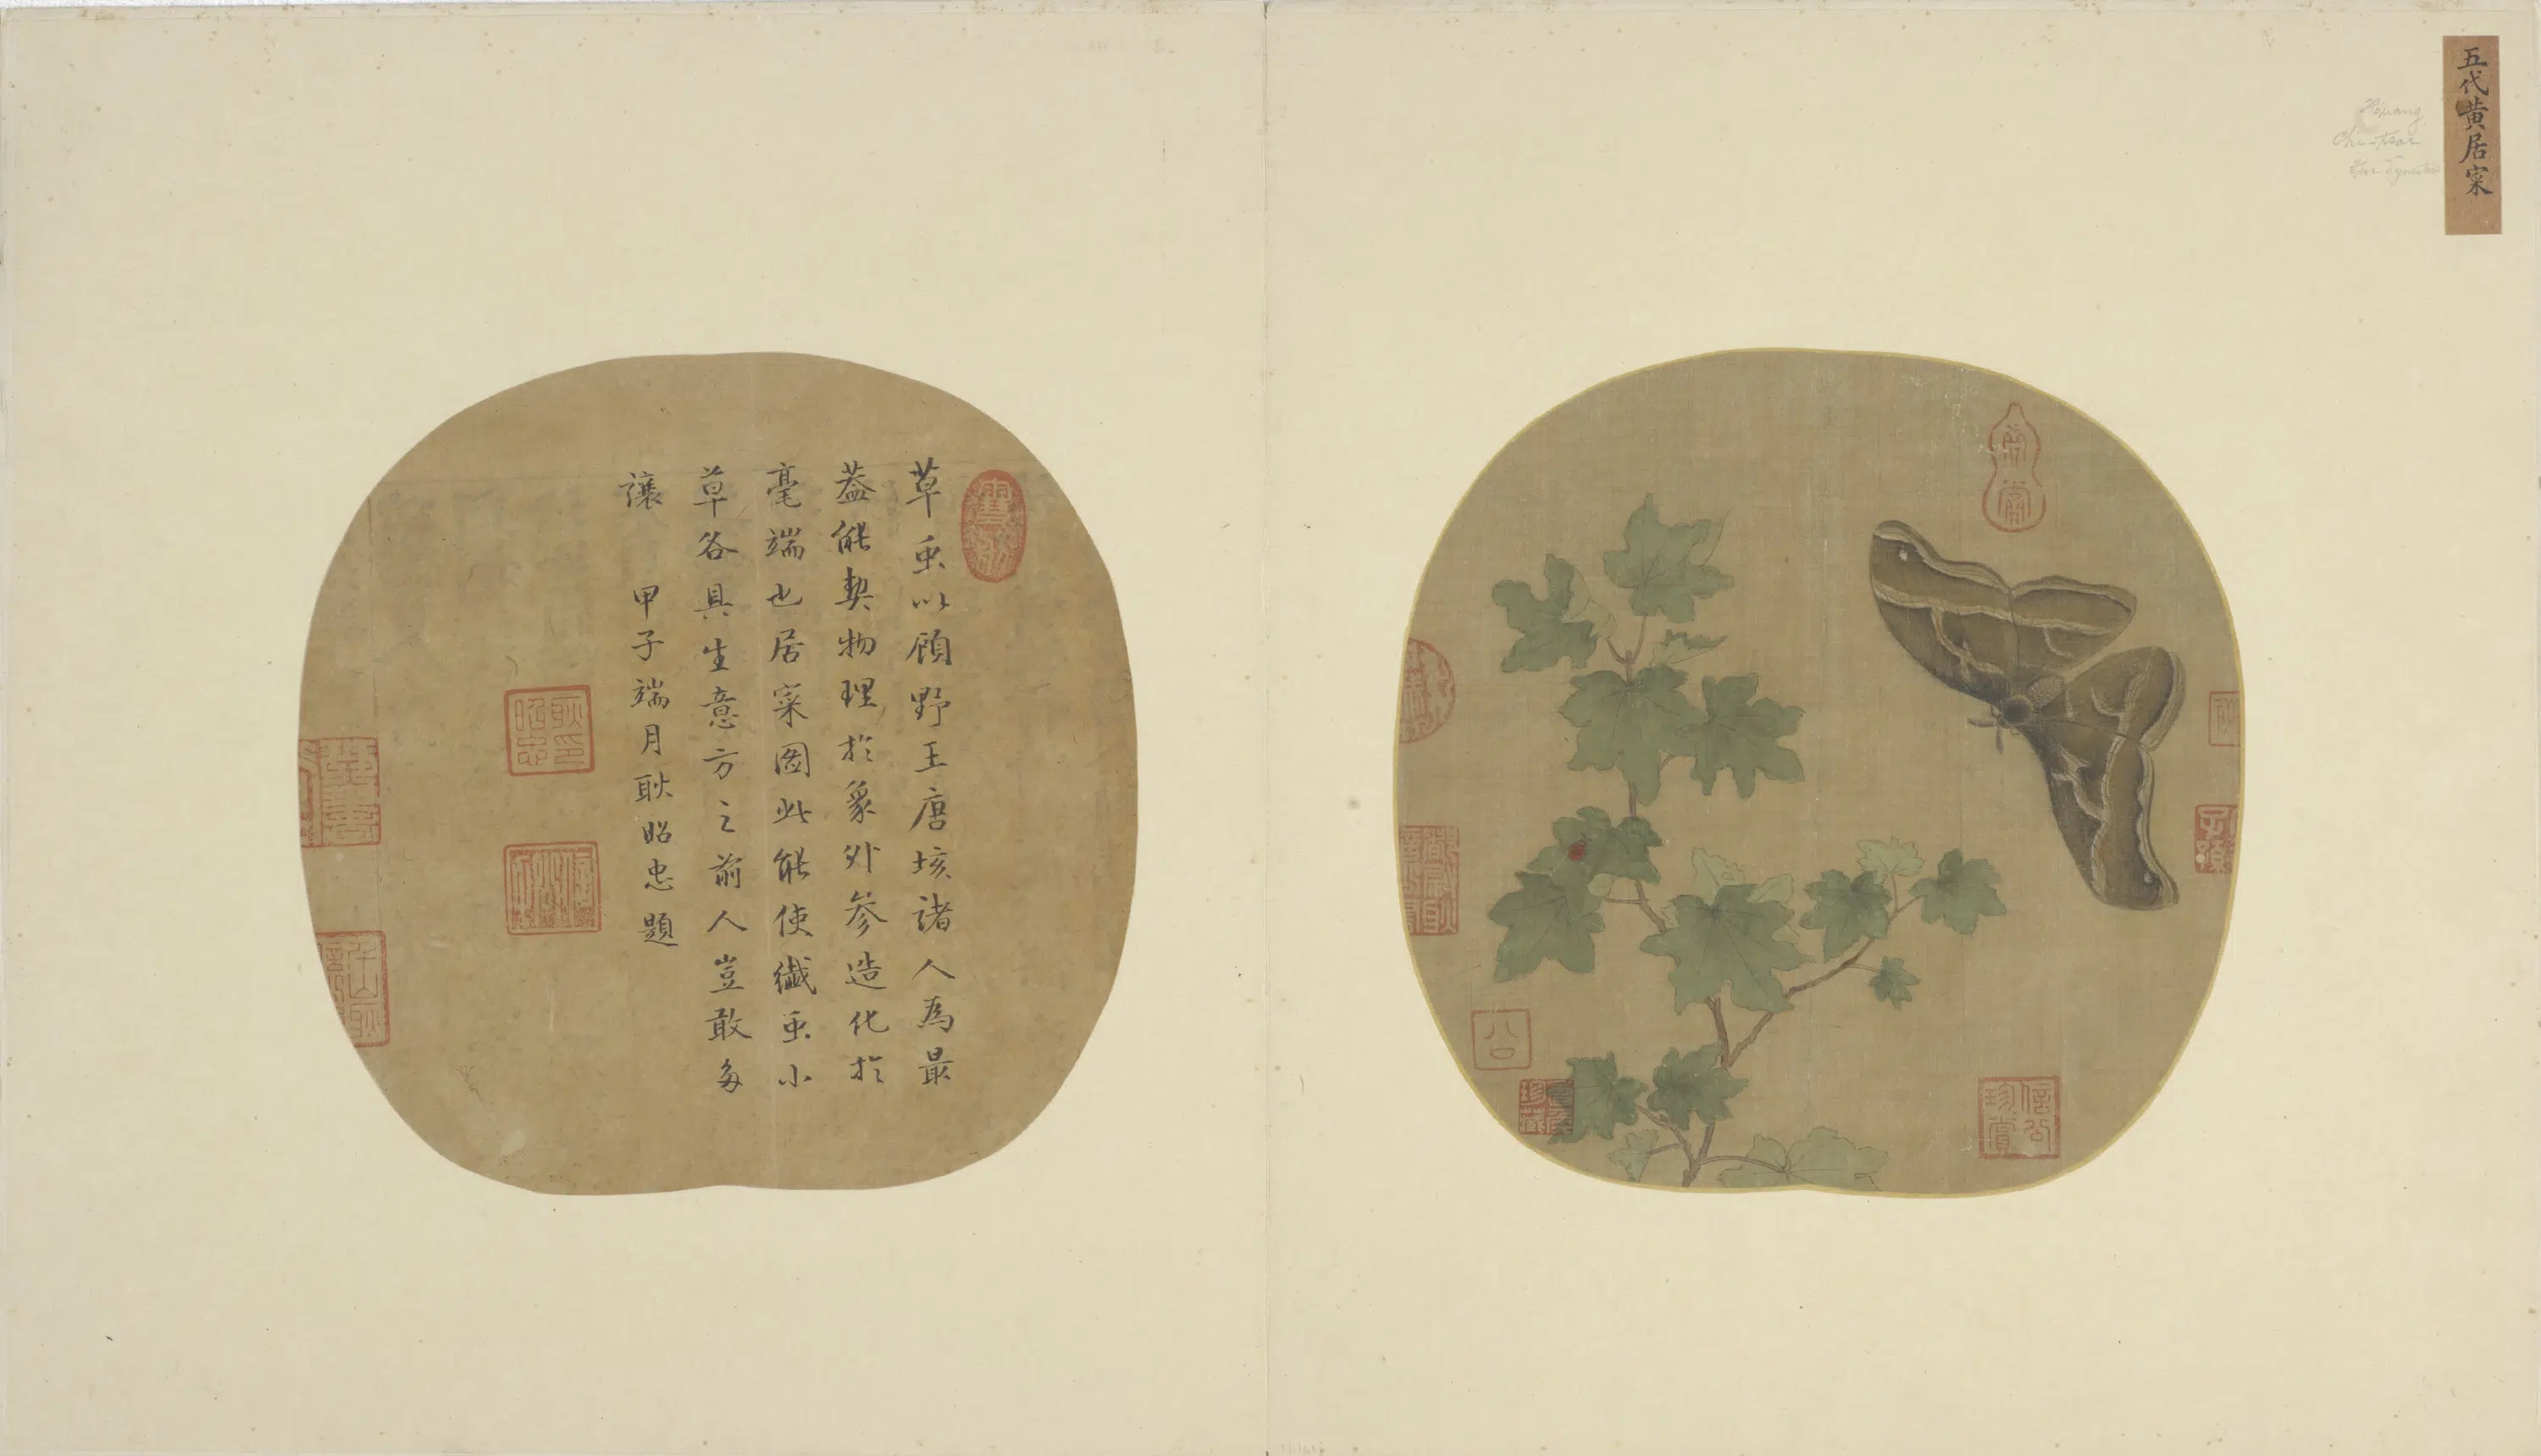 五代黃居寀
Huang
草虫以顧野王唐垓諸人為最
蓋能契物理於象外參造化於
毫端也居寀圖此能使纖虫小
草各具生意方之前人豈敢多
讓　甲子端月耿昭忠題
耿昭忠印
信公珍賞
公
珍藏